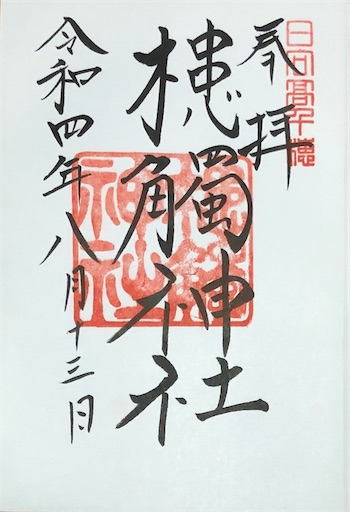 日向髙千穗
奉拝
槵觸神社
令和四年八月十三日